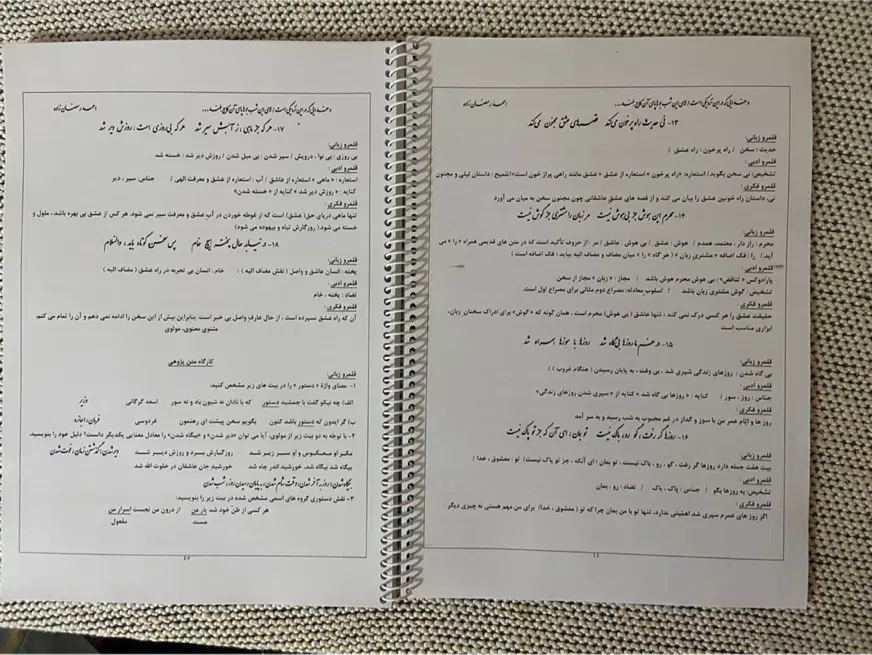 و خدایی که در این نزدیکی است / لای این شب بوها، پای آن کاج بلند... احمد رمضان زاده
۱۳- نی حدیث راه پرخون می‌کند قصه‌های عشق مجنون می‌کند
قلمرو زبانی:
حدیث: سخن / راه پرخون : راه عشق /
قلمرو ادبی :
تشخیص: نی سخن بگوید/ استعاره: «راه پرخون »استعاره از عشق « عشق مانند راهی پراز خون است»/تلمیح: داستان لیلی و مجنون
قلمرو فکری :
نی، داستان راه خونین عشق را بیان می کند و از قصه های عشقِ عاشقانی چون مجنون سخن به میان می آورد
۱۴- محرم این هوش جز بی‌هوش نیست مر زبان را مشتری جز گوش نیست
قلمرو زبانی:
محرم : راز دار ، معتمد، همدم / هوش : عشق / بی هوش : عاشق / مر : از حروف تأکید است که در متن های قدیمی همراه « را » می
آید./ را : فک اضافه «مشتریِ زبان » ( هر گاه « را » میان مضاف و مضاف الیه بیاید ؛ فک اضافه است )
قلمرو ادبی:
پارادوکس « تناقض» : بی هوش محرم هوش باشد / مجاز : « زبان » مجاز از سخن
تشخیص : گوش مشتری زبان باشد / اسلوب معادله: مصراع دوم مثالی برای مصراع اول است.
قلمرو فکری
حقیقت عشق را هر کسی درک نمی کند ؛ تنها عاشق ( بی هوش) محرم است ، همان گونه که «گوش» برای ادراک سخنان زبان،
ابزاری مناسب است
۱۵- در غم ما روزها بی‌گاه شد روزها با سوزها همراه شد
قلمرو زبانی:
بی گاه شدن : روزهای زندگی شپری شد ، بی وقت ، به پایان رسیدن ( هنگام غروب ) /
قلمرو ادبی :
جناس : روز ، سوز / کنایه : « روزها بی گاه شد »کنایه از « سپری شدن روزهای زندگی»
قلمرو فکری :
روز ها و ایّام عمر من با سوز و گداز در غم محبوب به شب رسید و به سر آمد
۱۶- روزها گر رفت، گو: رو، باک نیست تو بمان، ای آن که جز تو پاک نیست
قلمرو زبانی:
بیت هفت جمله دارد روزها گر رفت ، گو ، رو ، باک نیست ، تو بمان ؛ ای آنکه ، جز تو پاک نیست/ تو : معشوق ، خدا /
قلمرو ادبی :
تشخیص: به روزها بگو / جناس: پاک ، باک / تضاد : رو ، بمان
قلمرو فکری :
اگر روز های عمرم سپری شد اهمّیتی ندارد، تنها تو با من بمان چرا که تو ( معشوق ، خدا) برای من مهم هستی نه چیزی دیگر
۴۴
و خدایی که در این نزدیکی است / لای این شب بوها، پای آن کاج بلند... احمد رمضان زاده
۱۷- هر که جز ماهی، ز آبش سیر شد هر که بی‌روزی است، روزش دیر شد
قلمرو زبانی:
بی روزی : بی نوا ، درویش / سیر شدن : بی میل شدن / روزش دیر شد : خسته شد
قلمرو ادبی:
استعاره: « ماهی » استعاره از عاشق / آب : استعاره از عشق و معرفت الهی / جناس: سیر ، دیر
کنایه : « روزش دیر شد » کنایه از « خسته شدن»
قلمرو فکری:
تنها ماهی دریای حق( عشق) است که از غوطه خوردن در آب عشق و معرفت سیر نمی شود. هر کس از عشق بی بهره باشد ، ملول و
خسته می شود.( روزگارش تباه و بیهوده می شود)
۱۸- در نیابد حال پخته هیچ خام پس سخن کوتاه باید، والسلام
قلمرو زبانی:
پخته : انسان عاشق و واصل ( نقش مضاف الیه ) / خام : انسان بی تجربه در راه عشق ( مضاف الیه )
قلمرو ادبی:
تضاد: پخته ، خام
قلمرو فکری :
آن که راه عشق نسپرده است ، از حال عارفِ واصل بی خبر است. بنابراین بیش از این سخن را ادامه نمی دهم و آن را تمام می کنم.
مثنوی معنوی، مولوی
کارگاه متن پژوهی
قلمرو زبانی:
۱- معنای واژۀ « دستور » را در بیت های زیر مشخص کنید:
الف) چه نیکو گفت با جمشید دستور که با نادان نه شیون باد و نه سور اسعد گرگانی وزیر
ب) گر ایدون که دستور باشد کنون بگویم سخن پیشت ای رهنمون فردوسی فرمان، اجازه
۲- با توجّه به دو بیت زیر از مولوی، آیا می توان «دیر شدن» و «بیگاه شدن» را معادل معنایی یکدیگر دانست؟ دلیل خود را بنویسید.
مکر او معکوس و او سر زیر شد روزگارش برد و روزش دیر شد دیر شدن: گذشتن زمان، فوت شدن
بیگاه شد بیگاه شد، خورشید اندر چاه شد خورشید جان عاشقان در خلوت الله شد
۳- نقش دستوری گروه های اسمی مشخص شده در بیت زیر را بنویسید:
هر کسی از ظنّ خود شد یار من از درون من نجست اسرار من
مسند مفعول
۴۵